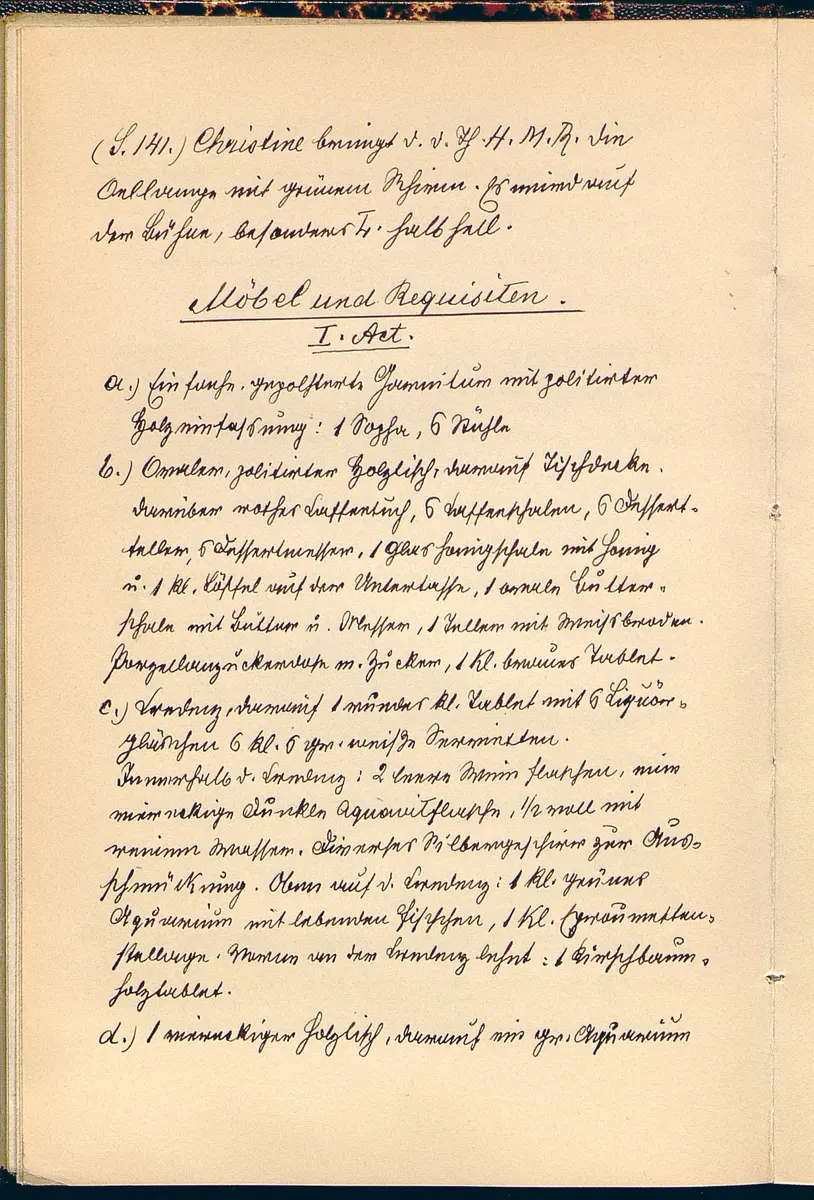 (S. 141.) Christine bringt d. d. Th. H. M. R. die
Oellampe mit grünem Schirm. Es wird auf
der Bühne, besonders L. halb hell.
Möbel und Requisiten.
I. Act.
a.) Einfache, gepolsterte Garnitur mit politirter
Holzeinfassung: 1 Sopha, 6 Stühle
b.) Ovaler, politirter Holztisch, darauf Tischdecke.
darüber rothes Kaffeetuch, 6 Kaffeeschalen, 6 Dessert-
teller, 6 Dessertmesser, 1 Glashonigschale mit Honig
u. 1 kl. Löffel auf der Untertasse, 1 ovale Butter-
schale mit Butter u. Messer, 1 Teller mit Weissbroden.
Porzellanzuckerdose m. Zucker, 1 kl. braunes Tablet.
c.) Credenz, darauf 1 rundes kl. Tablet mit 6 Liquör-
gläschen 6 kl. 6 gr. weiße Servietten.
Innerhalb d. Credenz: 2 leere Weinflaschen, eine
viereckige dunkle Aquavitflasche, 1/2 voll mit
reinem Wasser. Diverses Silbergeschirr zur Aus-
schmückung. Oben auf d. Credenz: 1 kl. grünes
Aquarium mit lebenden Fischchen, 1 kl.
stellage. Vorne an der Credenz lehnt: 1 Kirschbaum-
holztablet.
d.) 1 viereckiger Holztisch, darauf ein gr. Aquarium